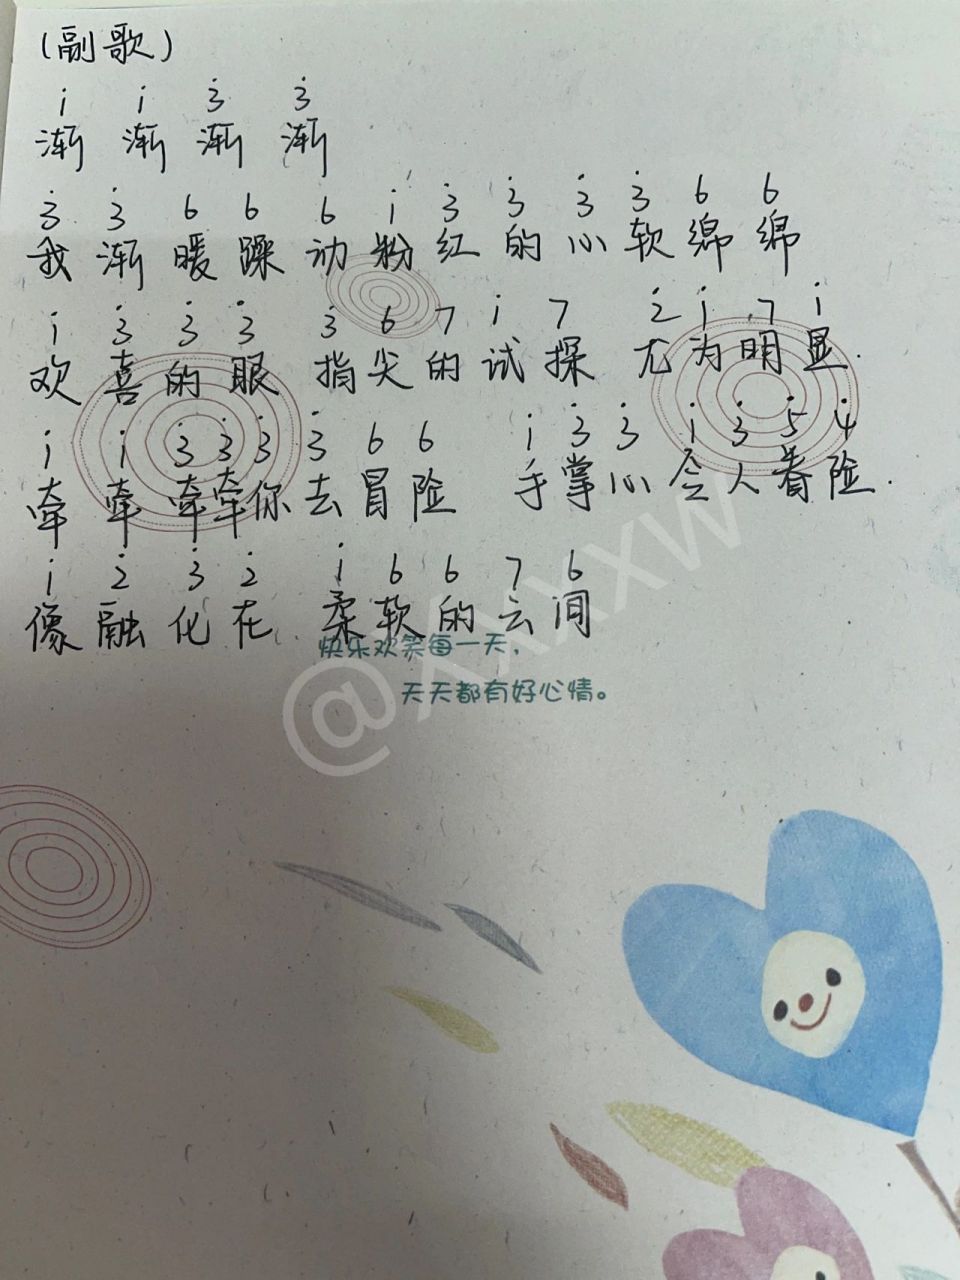 (副歌)
i i 3̇ 3̇
渐 渐 渐 渐
3̇ 3̇ 6 6 6 i 3̇ 3̇ 3̇ 3̇ 6 6
我 渐 暖 躁 动 粉 红 的 心 软 绵 绵
i 3̇ 3̇ 3̇ 3̇ 6 7 i 7 2̇ i 7 i
欢 喜 的 眼 指 尖 的 试 探 尤 为 明 显.
i i 3̇ 3̇ 3̇ 3̇ 6 6 i 3̇ 3̇ i 3̇ 5̇ 4̇
牵 牵 牵 牵 你 去 冒 险 手 掌 心 令 人 着 险.
i 2̇ 3̇ 2̇ i 6 6 7 6
像 融 化 在 柔 软 的 云 间
快乐欢笑每一天，
天天都有好心情。
@XXXW